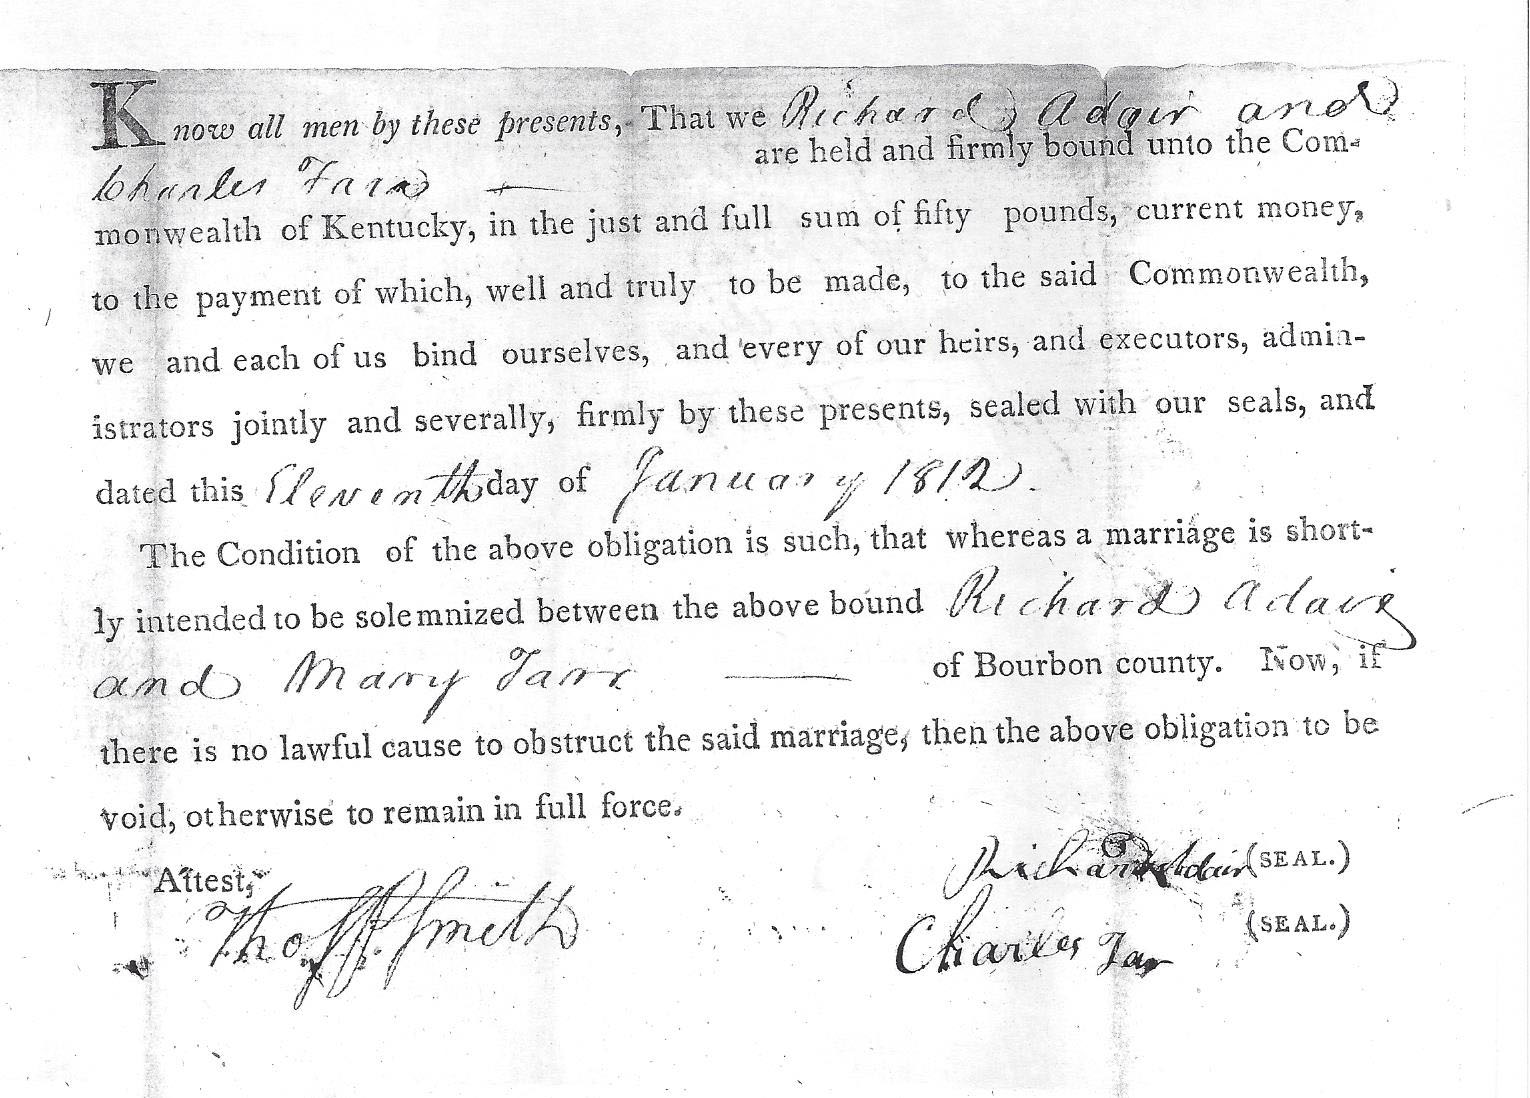 Know all men by these presents, That we Richard Adair and
Charles Tarr are held and firmly bound unto the Com-
monwealth of Kentucky, in the just and full sum of fifty pounds, current money,
to the payment of which, well and truly to be made, to the said Commonwealth,
we and each of us bind ourselves, and every of our heirs, and executors, admin-
istrators jointly and severally, firmly by these presents, sealed with our seals, and
dated this Eleventh day of January 1812.
The Condition of the above obligation is such, that whereas a marriage is short-
ly intended to be solemnized between the above bound Richard Adair
and Mary Tarr of Bourbon county. Now, if
there is no lawful cause to obstruct the said marriage, then the above obligation to be
void, otherwise to remain in full force.
Richard Adair (SEAL.)
Attest,
Tho P. Smith
Charles Tar (SEAL.)